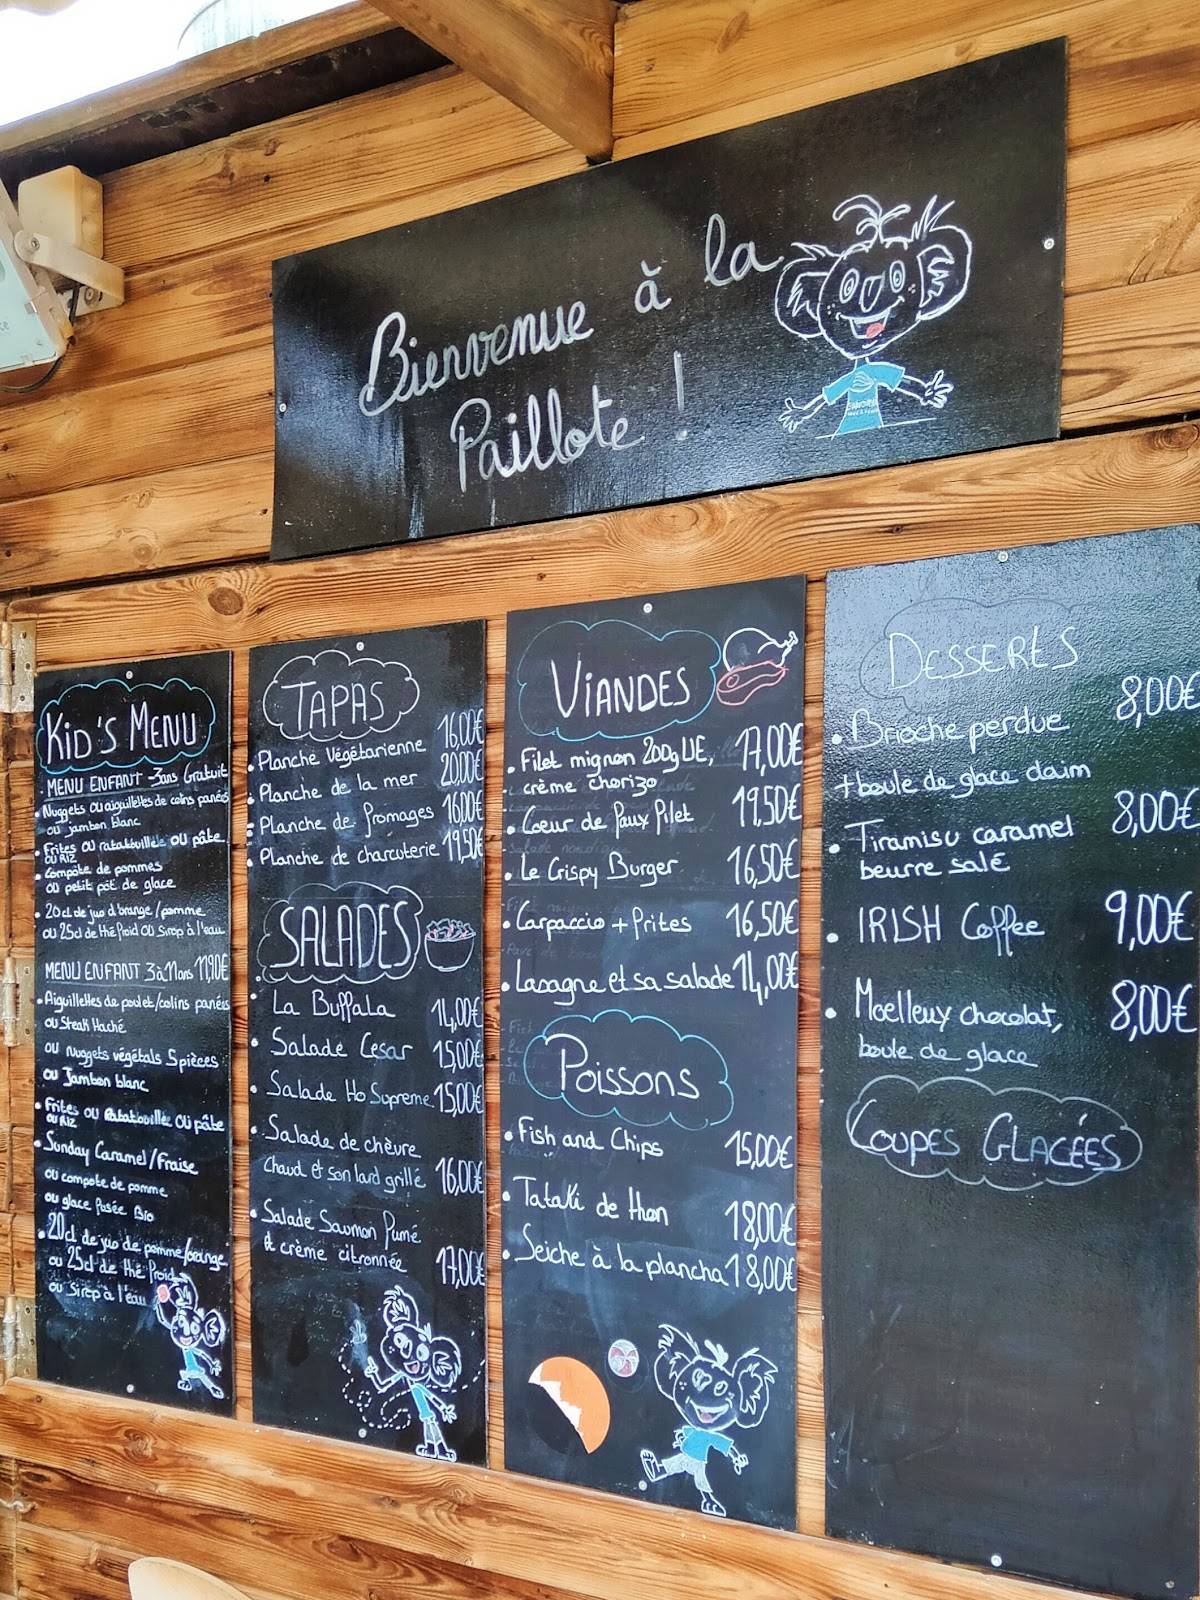 Bienvenue à la
Paillote !
KID'S MENU
MENU ENFANT -3ans Gratuit
• Nuggets ou aiguillettes de colins panées
ou jambon blanc
• Frites ou ratatouille ou pâte
ou RIZ
• Compote de pommes
ou petit pot de glace
• 20cl de jus d'orange/pomme
ou 25cl de thé froid ou Sirop à l'eau
MENU ENFANT 3 à 11ans 11,90€
• Aiguillettes de poulet/colins panées
ou Steak Haché
ou Nuggets végétals 5 pièces
ou Jambon blanc
• Frites ou Ratatouille ou pâte
ou RIZ
• Sunday Caramel/Fraise
ou compote de pomme
ou glace fusée Bio
• 20cl de jus de pomme/orange
ou 25cl de thé froid
ou Sirop à l'eau
TAPAS
• Planche Végétarienne 16,00€
• Planche de la mer 20,00€
• Planche de fromages 16,00€
• Planche de charcuterie 19,50€
SALADES
• La Buffala 14,00€
• Salade César 15,00€
• Salade Ho Supreme 15,00€
• Salade de chèvre
chaud et son lard grillé 16,00€
• Salade Saumon fumé
& crème citronnée 17,00€
VIANDES
• Filet mignon 200g UE, 17,00€
crème chorizo
• Coeur de faux filet 19,50€
• Le Crispy Burger 16,50€
• Carpaccio + frites 16,50€
• Lasagne et sa salade 14,00€
POISSONS
• Fish and Chips 15,00€
• Tataki de thon 18,00€
• Seiche à la plancha 18,00€
DESSERTS
• Brioche perdue 8,00€
+ boule de glace daim
• Tiramisu caramel 8,00€
beurre salé
• IRISH Coffee 9,00€
• Moelleux chocolat, 8,00€
boule de glace
COUPES GLACÉES